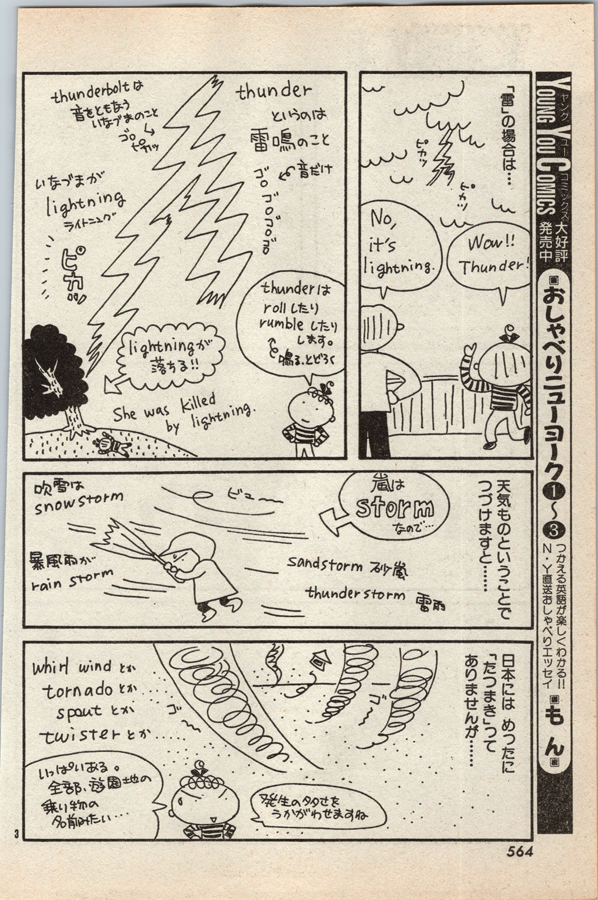 「雷」の場合は…
ピカッ
ピカッ
Wow!!
Thunder!
No,
it's
lightning.
thunder
というのは
雷鳴のこと
音だけ
ゴロゴロゴロ
thunderboltは
音をともなう
いなづまのこと
ゴロ
ピカッ
いなづまが
lightning
ライトニング
ピカッ
thunderは
rollしたり
rumbleしたり
します。
鳴る、とどろく
lightningが
落ちる!!
She was killed
by lightning.
天気ものということで
つづけますと……
嵐は
storm
なので…
ビュー
吹雪は
snowstorm
暴風雨が
rain storm
sandstorm 砂嵐
thunderstorm 雷雨
日本には めったに
「たつまき」って
ありませんが……
ゴ〜
ゴ〜
whirl windとか
tornadoとか
spoutとか
twisterとか…
いっぱいある。
全部、遊園地の
乗り物の
名前みたい…
発生の多さを
うかがわせますね
3
564
YOUNG YOU COMICS
ヤングユーコミックス
大好評
発売中
おしゃべりニューヨーク①〜③
つかえる英語が楽しくわかる!!
N・Y直送おしゃべりエッセイ
もん